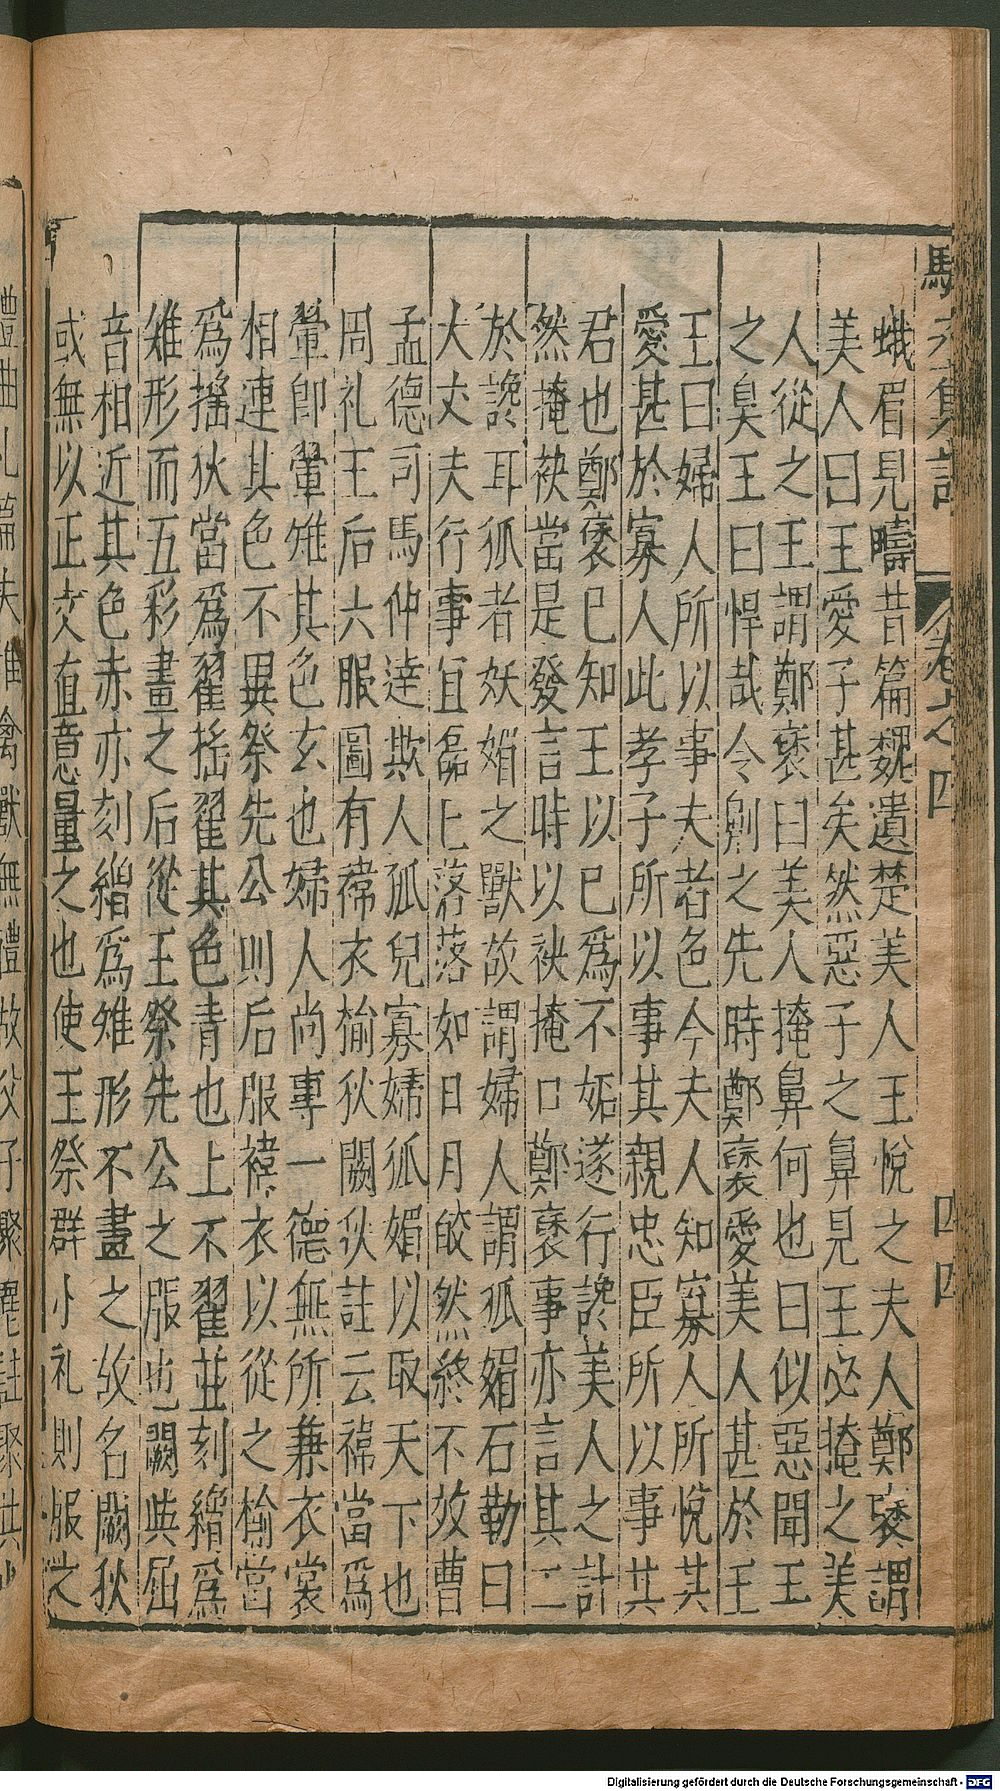 蛾眉見疇昔篇魏遺楚美人王悅之夫人鄭褎謂
美人曰王愛子甚矣然惡子之鼻見王必掩之美
人從之王謂鄭褎曰美人掩鼻何也曰似惡聞王
之臭王曰悍哉令劓之先時鄭褎愛美人甚於王
王曰婦人所以事夫者色今夫人知寡人所悅其
愛甚於寡人此孝子所以事其親忠臣所以事其
君也鄭褎已知王以已為不妬遂行讒美人之計
然掩袂當是發言時以袂掩口鄭褎事亦言其工
於讒耳狐者妖媚之獸故謂婦人謂狐媚石勒曰
大丈夫行事宜磊上落落如日月皎然終不效曹
孟德司馬仲達欺人孤兒寡婦狐媚以取天下也
周礼王后六服圖有褘衣揄狄闕狄註云褘當爲
翬即翬雉其色玄也婦人尚專一德無所兼衣裳
相連其色不異祭先公則后服褘衣以從之揄當
爲搖狄當爲翟搖翟其色青也上不翟並刻繒爲
雉形而五彩畫之后從王祭先公之服也闕與屈
音相近其色赤亦刻繒爲雉形不畫之故名闕狄
或無以正文直意量之也使王祭群小礼則服之
卷之四
四四
禮曲礼篇夫惟禽獸無禮故父子聚麀註聚共
Digitalisierung gefördert durch die Deutsche Forschungsgemeinschaft - DFG